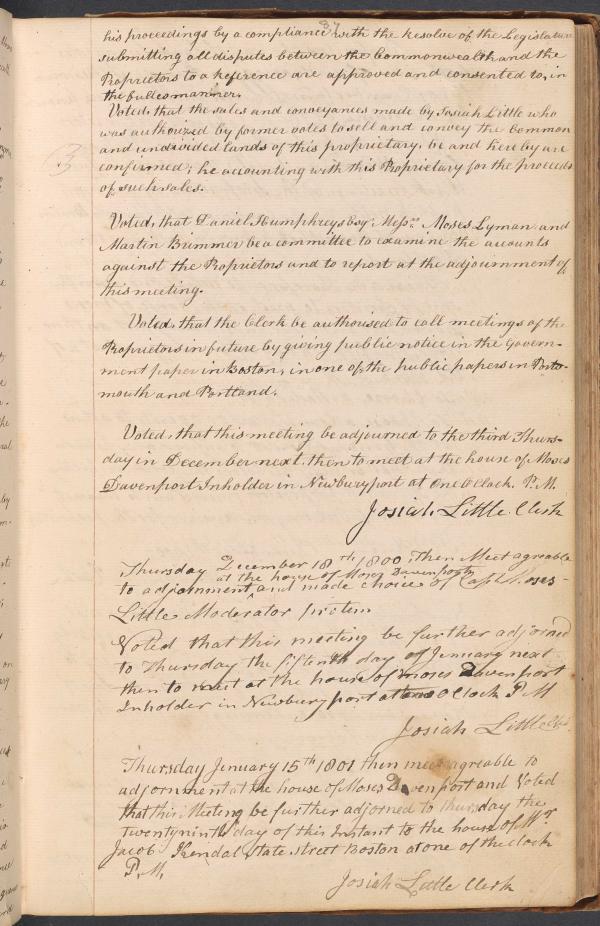 87
his proceedings by a compliance with the resolve of the Legislature
submitting all disputes between the Commonwealth and the
Proprietors to a reference are approved and consented to, in
the fullest manner.
Voted, that the sales and conveyances made by Josiah Little who
was authorized by former votes to sell and convey the Common
and undivided lands of this proprietary, be and hereby are
confirmed; he accounting with this Proprietary for the proceeds
of such sales.
Voted, that Daniel Humphreys Esqr. Messrs. Moses Lyman and
Martin Brimmer be a committee to examine the accounts
against the Proprietors and to report at the adjournment of
this meeting.
Voted, that the Clerk be authorised to call meetings of the
Proprietors in future by giving public notice in the Govern-
ment paper in Boston, in one of the public papers in Ports-
mouth and Portland.
Voted, that this meeting be adjourned to the third Thurs-
day in December next, then to meet at the house of Moses
Davenport Inholder in Newburyport at one oClock, P.M.
Josiah Little Clerk
Thursday December 18th 1800, Then Meet agreable
at the house of Moses Davenports
to adjornment, and made choice of Capt Moses
Little Moderator protem
Voted that this meeting be further adjorned
to Thursday the fifteenth day of Jenuary next
then to meet at the house of moses Davenport
Inholder in Newbury port at oClock P M
Josiah Little
Thursday Jenuary 15th 1801 then meet agreable to
adjornment at the house of Moses Davenport and Voted
that this Meeting be further adjorned to thursday the
twentyninth day of this Instant to the house of Mr
Jacob Kendal State street Boston at one of the Clock
P. M.
Josiah Little Clerk